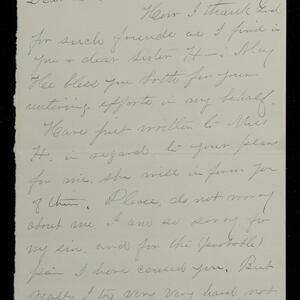 Dear
How I thank God
for such friends as I find in
you & dear Sister H—. May
He bless you both for your
untiring efforts in my behalf.
Have just written to Miss
H. in regard to your plans
for me, she will inform you
of them. Please, do not worry
about me. I am so sorry for
my sin, and for the (probable)
pain I have caused you. But
really I try very very hard not